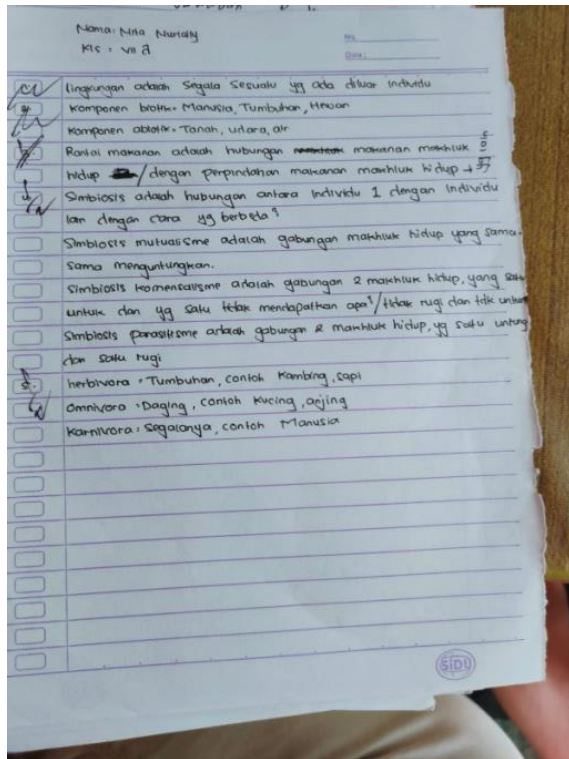 Nama: Nita Nurlaily
Kls : VII A
No.
Date:
lingkungan adalah segala sesuatu yg ada diluar individu
Komponen biotik = Manusia, Tumbuhan, Hewan
Komponen abiotik = Tanah, udara, air
Rantai makanan adalah hubungan makanan makhluk
hidup / dengan perpindahan makanan makhluk hidup →
Simbiosis adalah hubungan antara individu 1 dengan individu
lain dengan cara yg berbeda²
Simbiosis mutualisme adalah gabungan makhluk hidup yang sama-
sama menguntungkan.
Simbiosis komensalisme adalah gabungan 2 makhluk hidup, yang satu
untuk dan yg satu tidak mendapatkan apa²/tidak rugi dan tdk untung
Simbiosis parasitisme adalah gabungan 2 makhluk hidup, yg satu untung
dan satu rugi
herbivora = Tumbuhan, contoh Kambing, sapi
Omnivora = Daging, contoh Kucing, anjing
Karnivora = Segalanya, contoh Manusia
SIDU